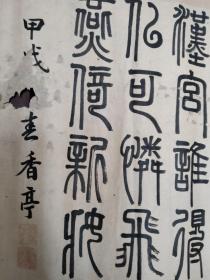 漢宮誰得
似可憐飛
燕倚新妝
甲戌
香亭